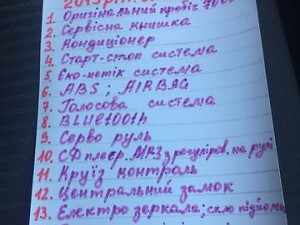 1. Оригінальний пробіг 7000
2. Сервісна книшка
3. Кондиціонер
4. Старт-стоп система
5. Еко-нетік система
6. ABS ; AIRBAG
7. Голосова система
8. Bluetooth
9. Серво руль
10. СД плеєр.. MP3 з регуліров. на рулі
11. Круїз контроль
12. Центральний замок
13. Електро зеркала; скло підйом